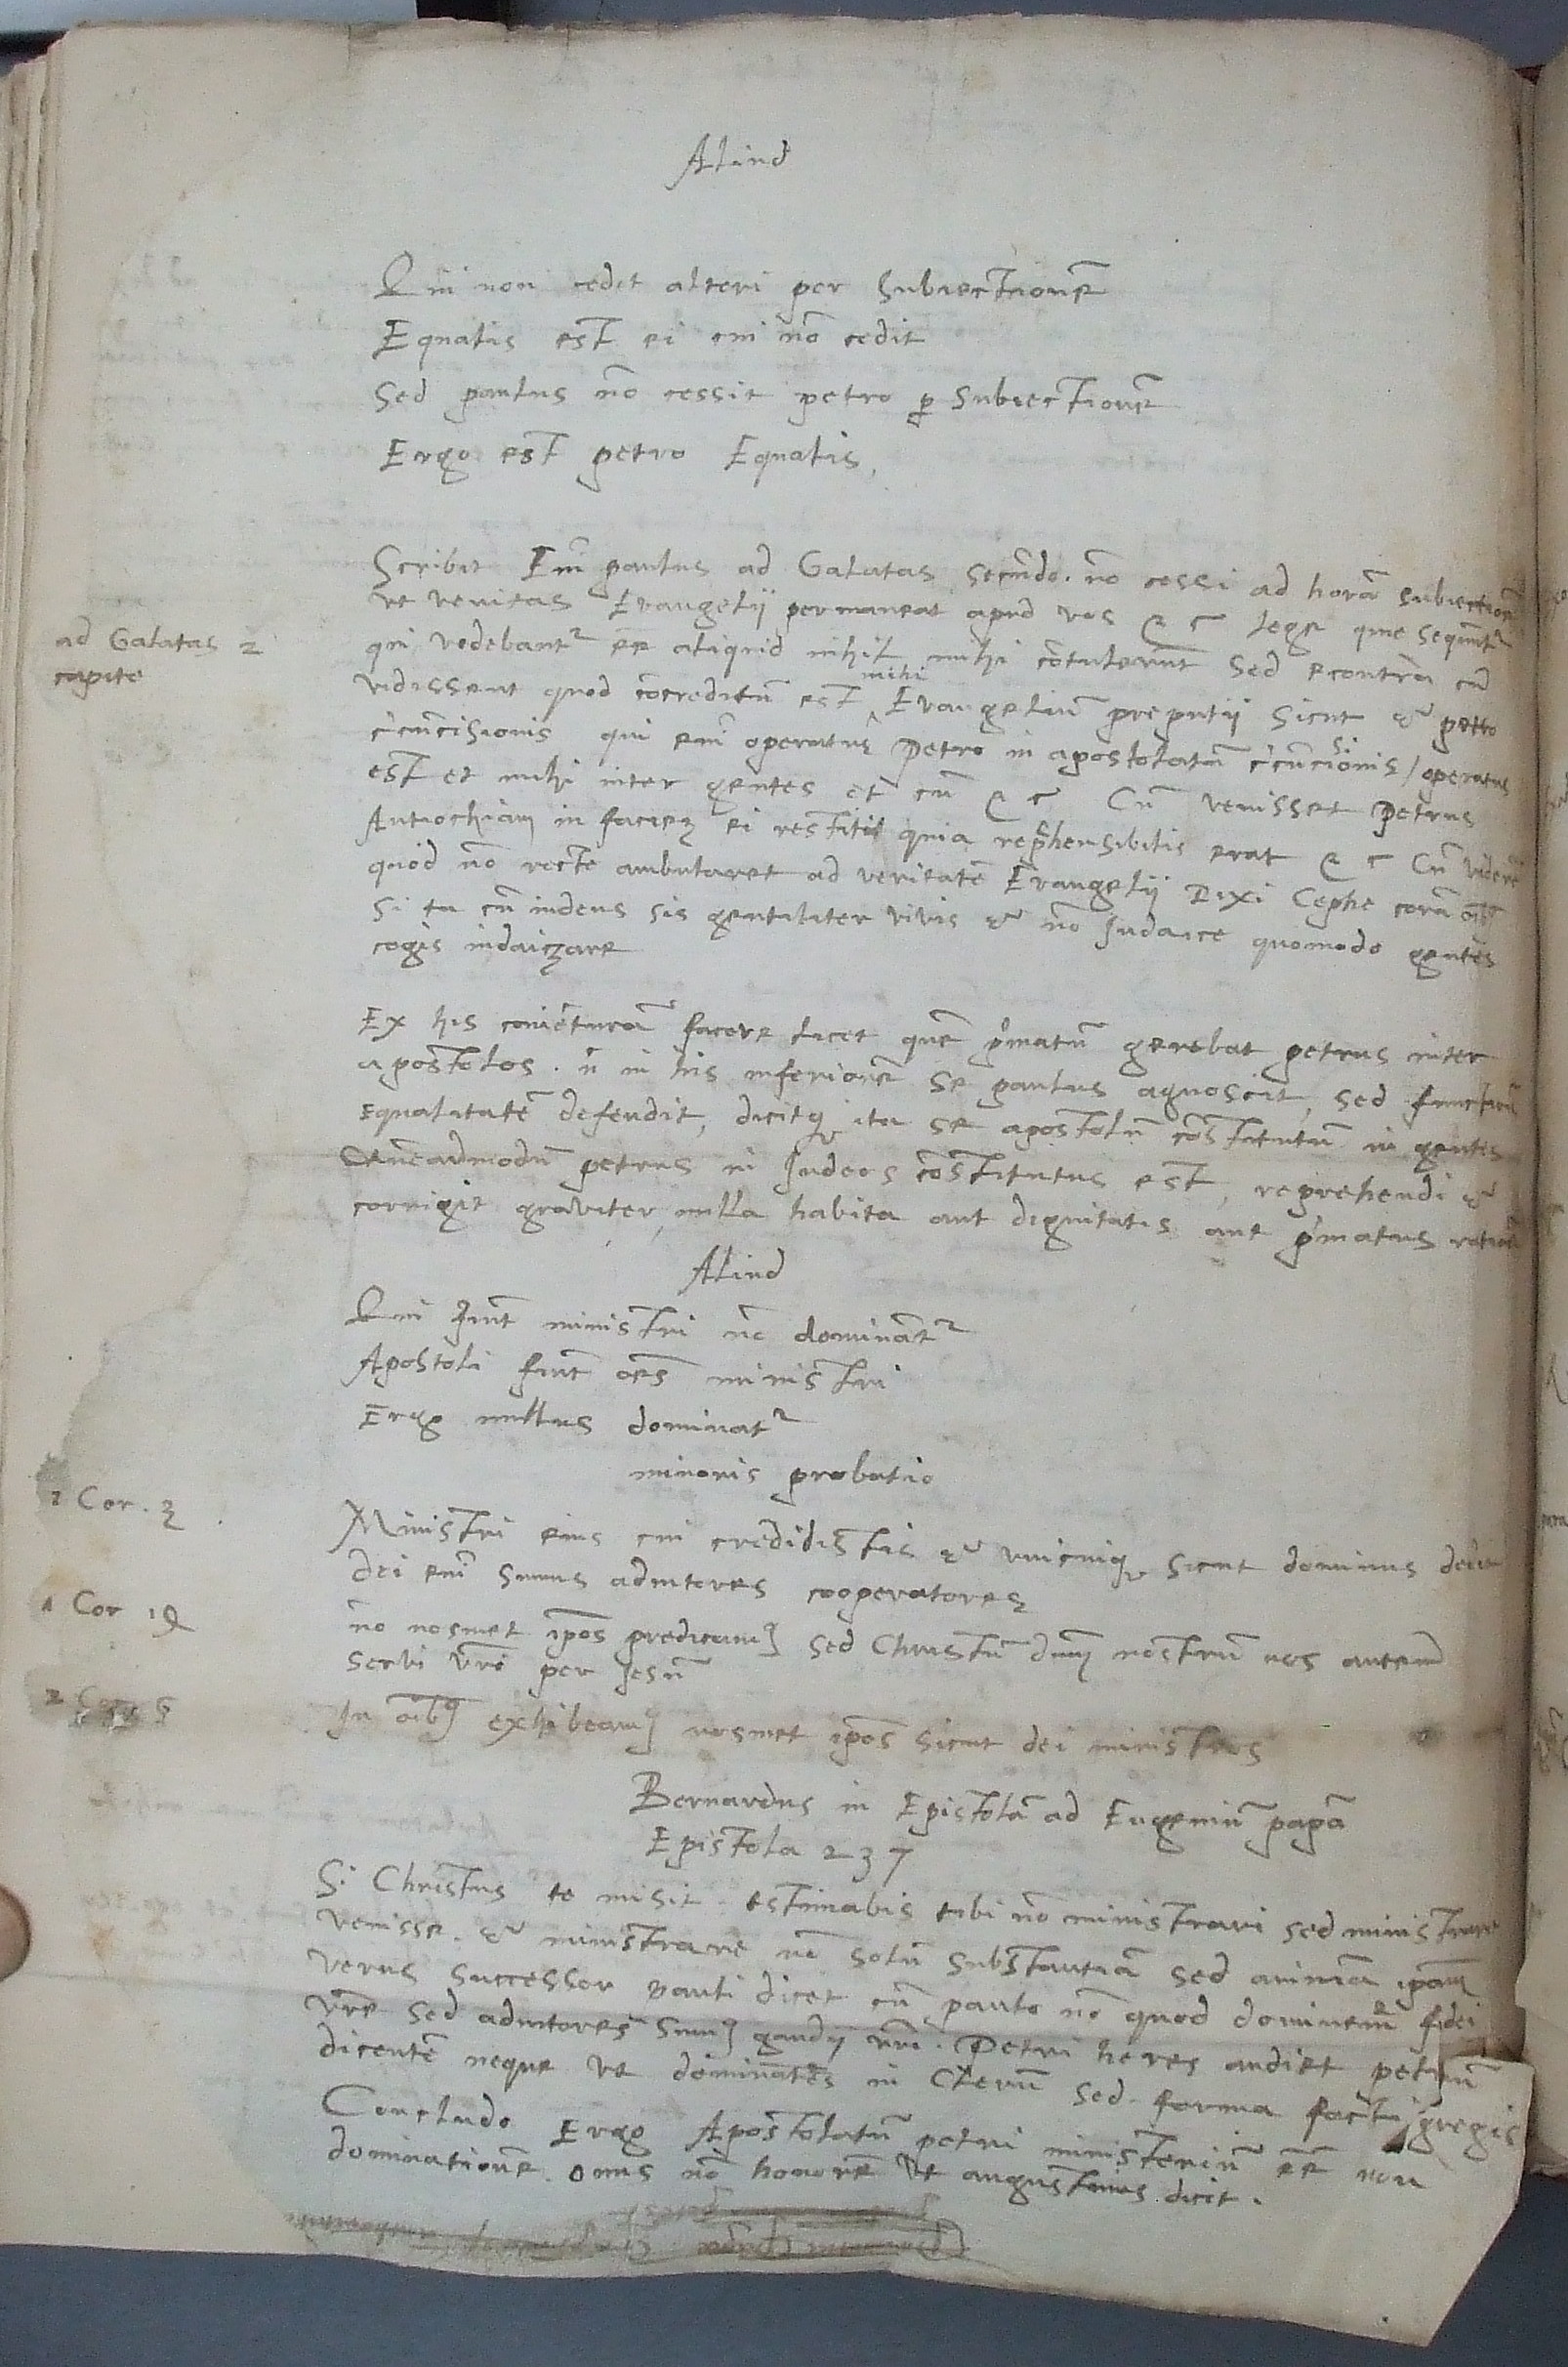 Aliud
Qui non cedit alteri per subiectionẽ
Equalis est ei cui nõ cedit
Sed paulus nõ cessit petro ꝑ subiectionẽ
Ergo est petro Equalis,
Scribit Eni͂ paulus ad Galatas secũdo. nõ cessi ad horã subiectionẽ
ut veritas Evangelij permaneat apud vos &c lege que sequũtʳ
ad Galatas 2
capite
qui videbantʳ eẽ aliquid nihil mihi cõtulerũt sed econtra cũ
vidissent quod cõcreditũ est ^mihi Evangeliũ preputij sicut & petro
c̃cũcisionis qui eni͂ operatus Petro in apostolatũ c̃cũcisionis / operatus
est et mihi inter gentes et cũ &c Cũ venisset Petrus
Antiochiam in faciem ei restiti quia rep̃hensibilis erat &c Cũ viderẽ
quod nõ recte ambularet ad veritatẽ Evangelij Dixi Cephe corã oĩbꝰ
Si tu cũ iudeus sis gentiliter vivis & nõ Iudaice quomodo gentes
cogis iudaizare
Ex his coniecturã facere licet quẽ p͛matũ gerebat petrus inter
apostolos. ñ in his inferiorẽ se paulus agnoscit, sed functionũ
equalitatẽ defendit, dicitqꝫ ita se apostolũ cõstitutum in gentes
Quẽadmodũ petrus in Iudeos cõstitutus est, reprehendi &
corrigit graviter, nulla habita aut dignitatis aut p͛matus rationẽ
Aliud
Qui sunt ministri nõ dominãtʳ
Apostoli sunt oẽs ministri
Ergo nullus dominatʳ
minoris probatio
1 Cor. 3
Ministri eius cui credidistis & unicuiqꝫ sicut dominus dedit
dei eni͂ sumus adiutores cooperatores
1 Cor
nõ nosmet ip̃os predicamꝰ sed Christũ dn̄m nostrũ nos autem
servi vr̃i per Iesũ
2
In oĩbꝰ exhibeamꝰ nosmet ip̃os sicut dei ministros
Bernardus in Epistolã ad Eugeniũ papã
Epistola 237
Si Christus te misit. estimabis tibi nõ ministrari sed ministrare
venisse. & ministrare nõ solũ substantiã sed animã ip̃am
verus successor pauli dicet cũ paulo nõ quod dominemʳ fidei
vr̃e sed adiutores sumꝰ gaudij vr̃i. Petri heres audiet petrum
dicentẽ neque ut dominãtes in Clerũ sed forma facti gregis
Concludo Ergo Apostolatũ petri ministeriũ eẽ non
dominationẽ. onus nõ honorẽ ut augustinus dicit.